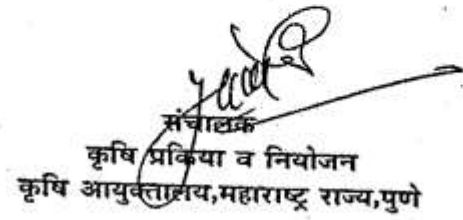 संचालक
कृषि प्रक्रिया व नियोजन
कृषि आयुक्तालय,महाराष्ट्र राज्य,पुणे